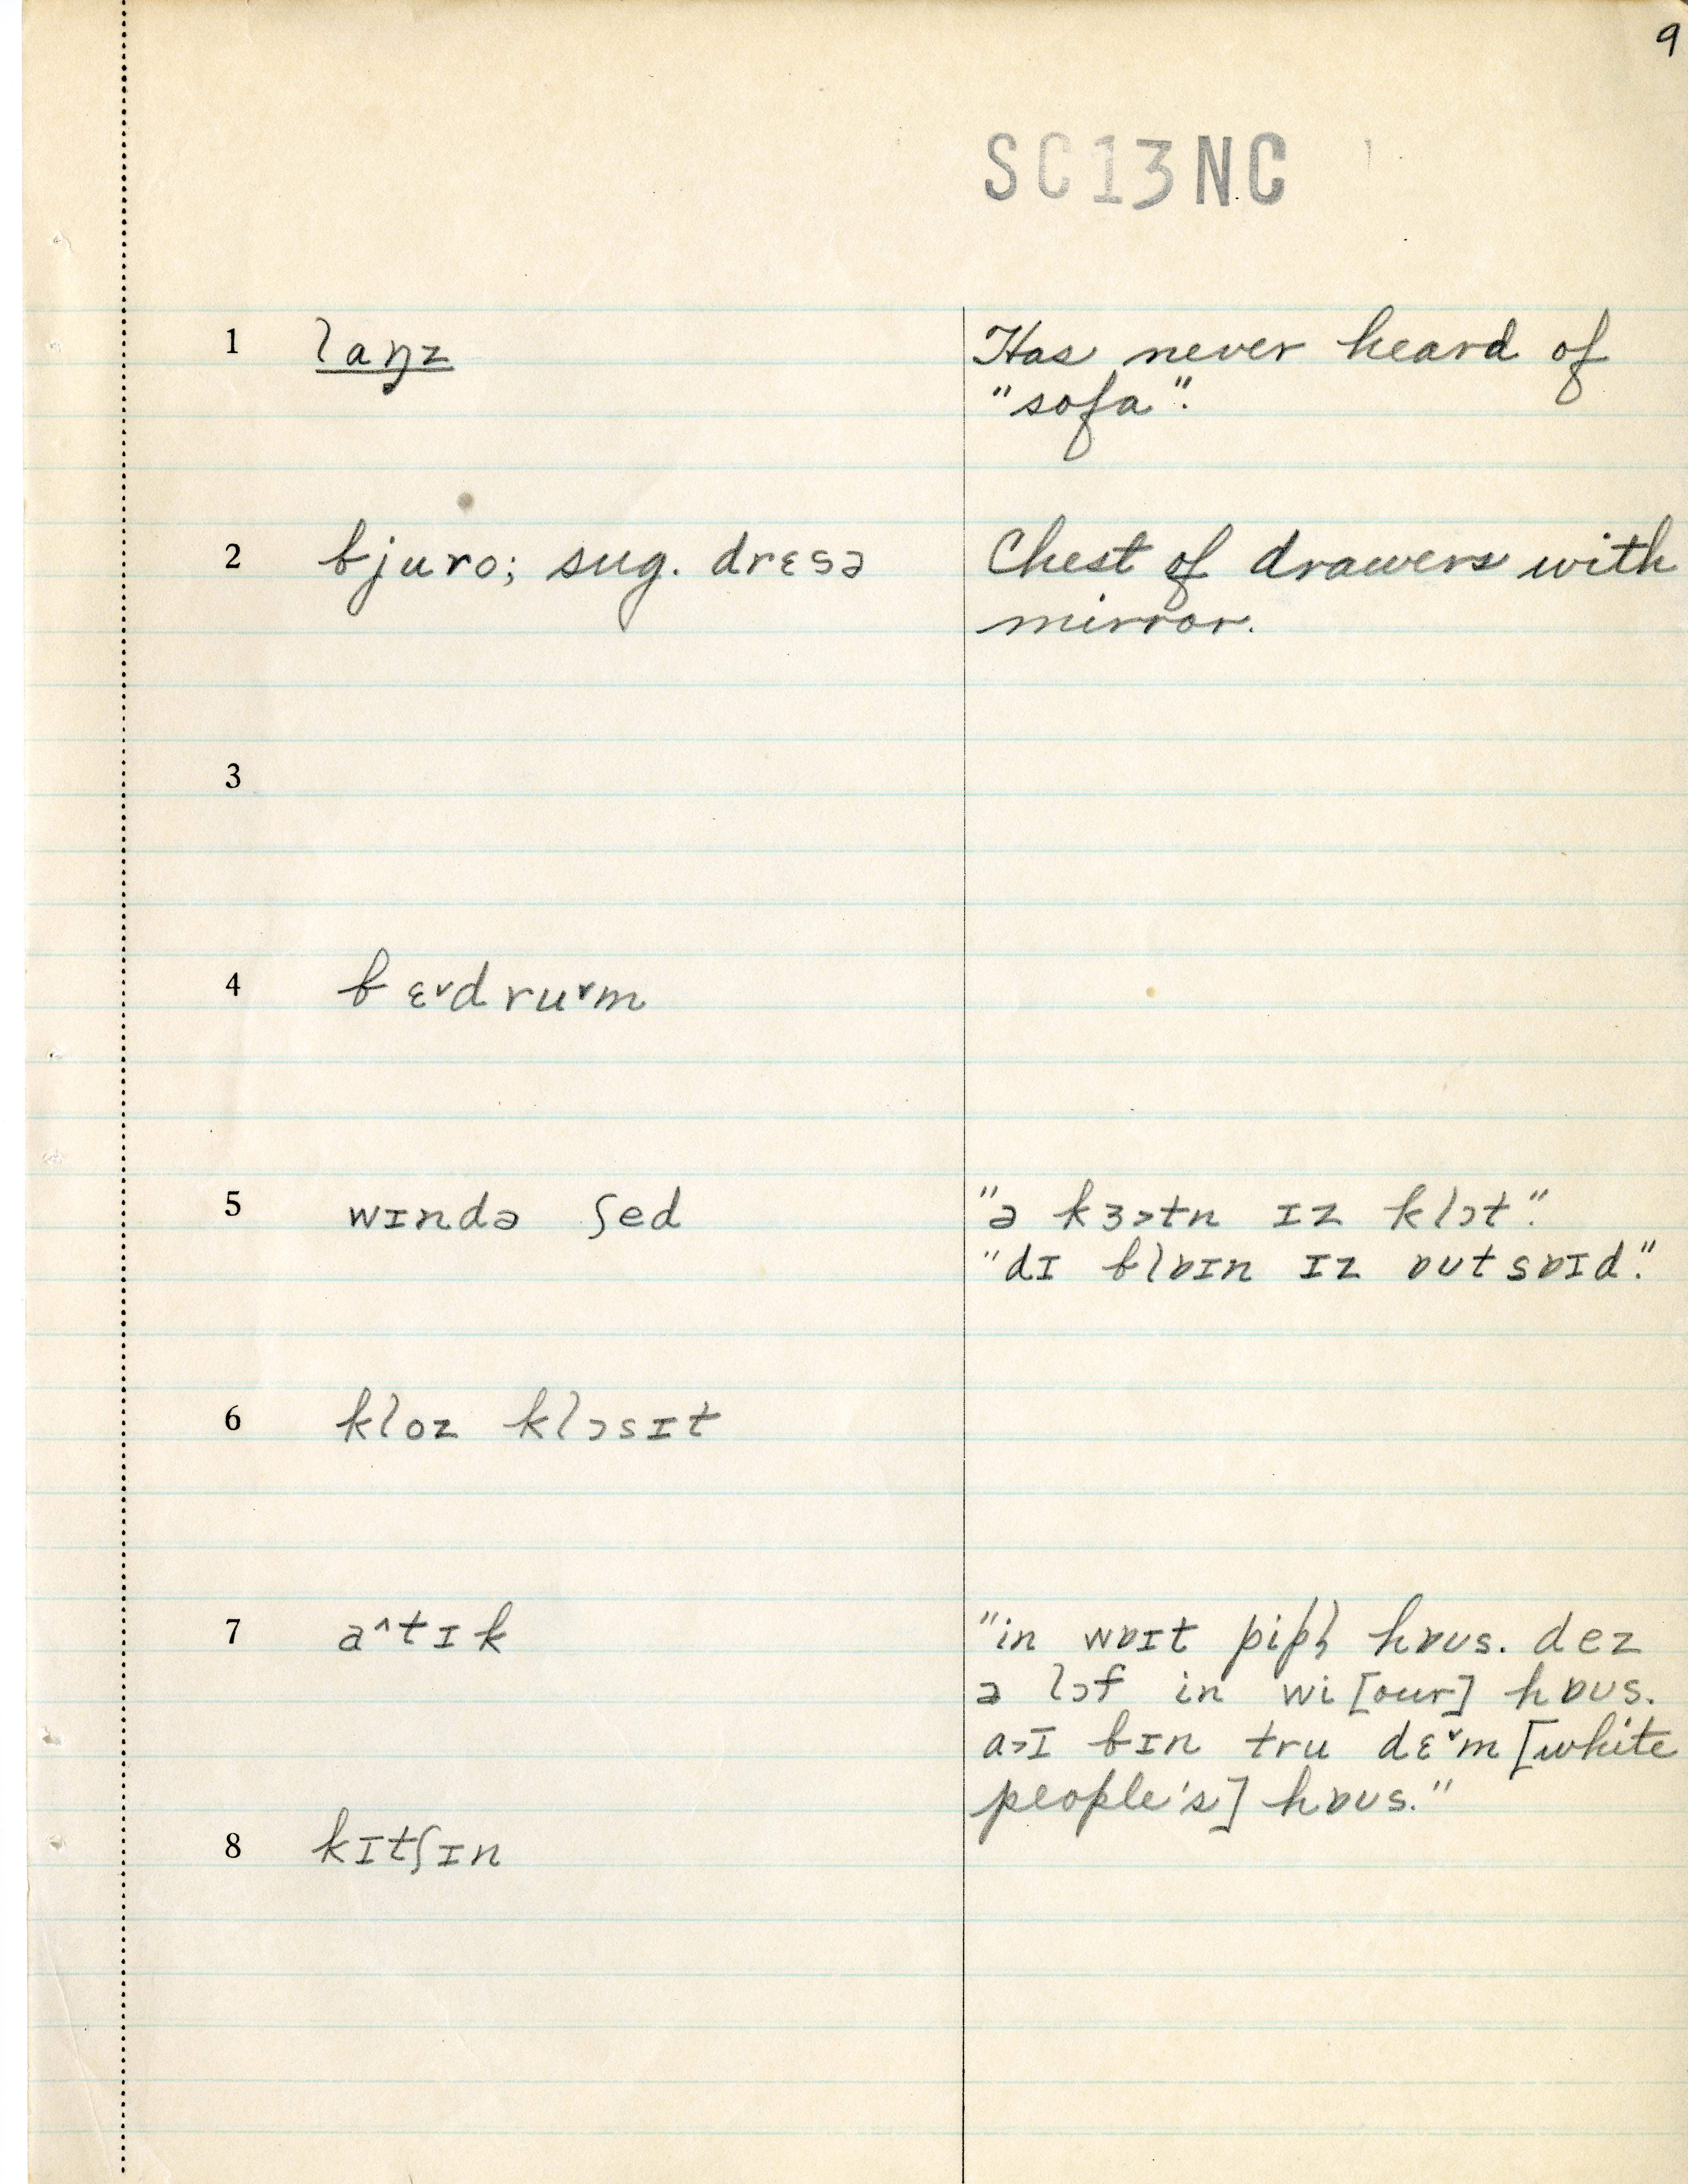 9
SC13NC
1 laŋz Has never heard of
"sofa".
2 bjuro; sug. drɛsə Chest of drawers with
mirror.
3
4 bɛ˅dru˅m
5 wɪndə ʃed "ə kɜ˃tn ɪz klɔt".
"dɪ blɒɪn ɪz ɒʊtsɒɪd."
6 kloz klɔsɪt
7 a^tɪk "in wɒɪt pipl̩ hɒʊs. dez
ə lɔf in wi [our] hɒʊs.
a˃ɪ bɪn tru dɛ˅m [white
people's] hɒʊs."
8 kɪtʃɪn